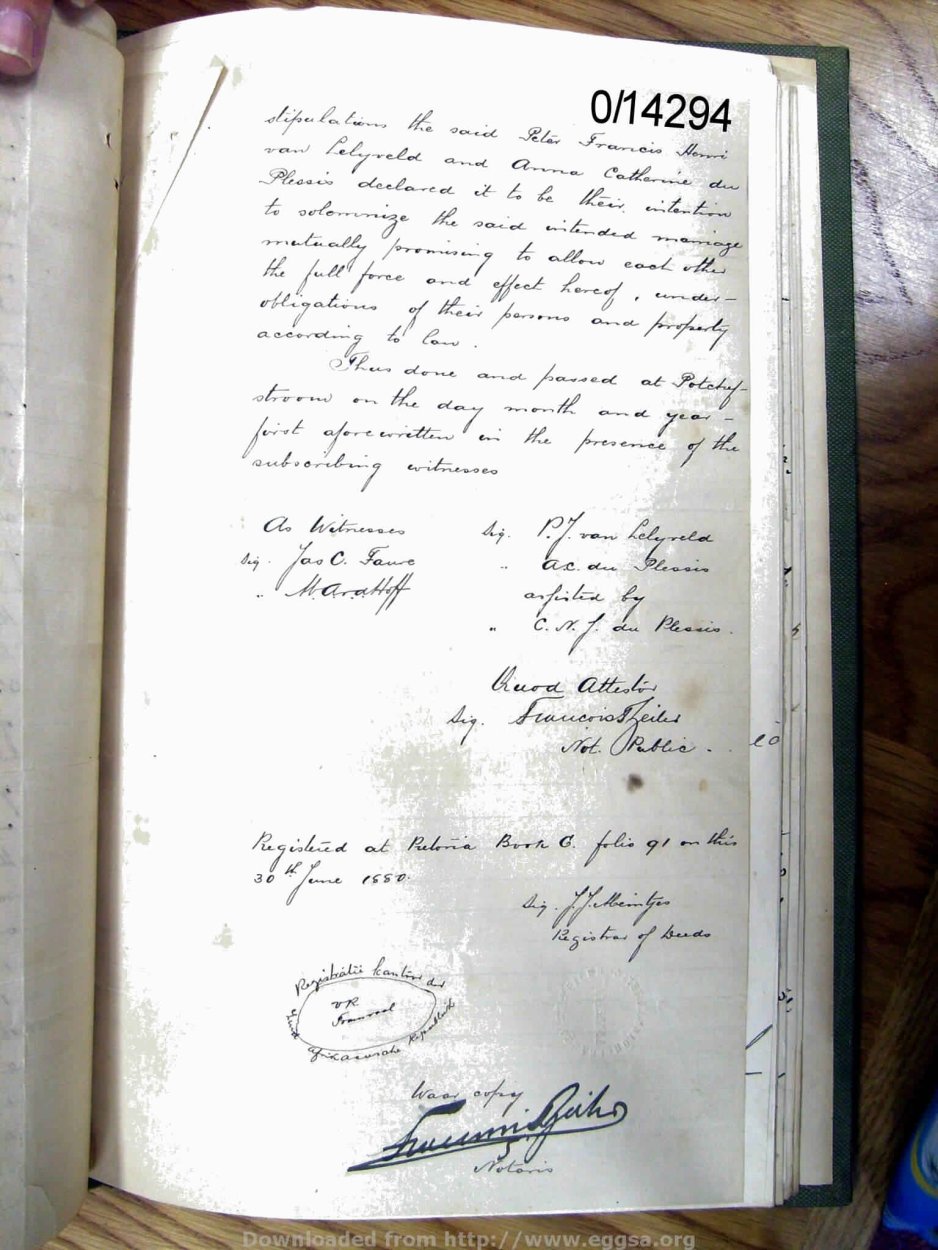 0/14294
stipulations the said Peter Francis Henri
van Lelyveld and Anna Catherine du
Plessis declared it to be their intention
to solomnize the said intended marriage
mutually promising to allow each other
the full force and effect hereof, under-
obligations of their persons and property
according to law.
Thus done and passed at Potchef-
stroom on the day month and year -
first aforewritten in the presence of the
subscribing witnesses
As Witnesses Sig. P.J. van Lelyveld
Sig. Jas C. Faure " A.C. du Plessis
" assisted by
" C.N.J. du Plessis.
Quod Attestor
Sig. Francois Zeiler
Not. Public.
Registered at Pretoria Book G. folio 91 on this
30th June 1880.
Sig. J.J. Meintjes
Registrar of Deeds
Registratie kantoor der
Zuid Afrikaansche Republiek
VR
Transvaal
Waar copy
Francois Zeiler
Notaris
Downloaded from http://www.eggsa.org